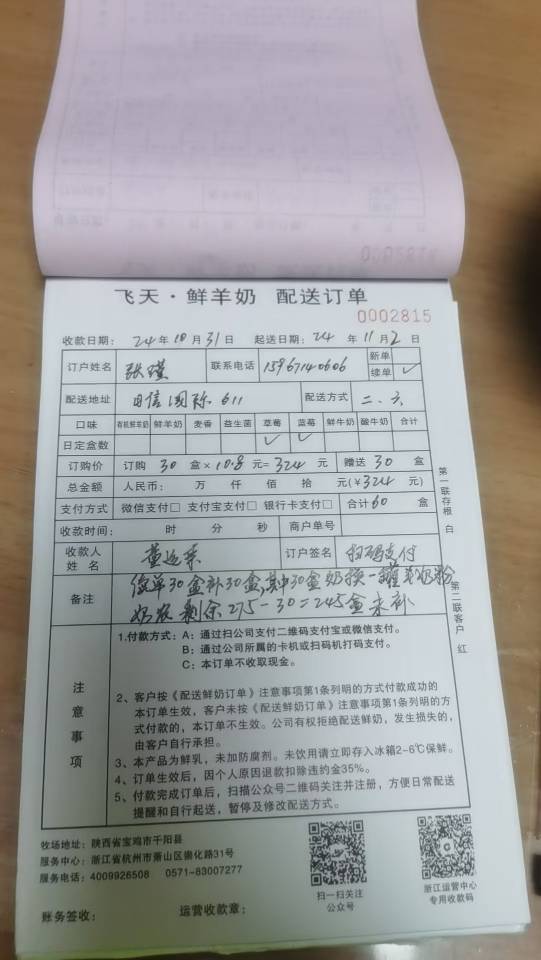 飞天·鲜羊奶 配送订单
0002815
收款日期： 24 年 10 月 31 日 起送日期： 24 年 11 月 2 日
订户姓名 张瑾 联系电话 15967140606 新单
续单 ✓
配送地址 日信国际 611 配送方式 二、六
口味 有机鲜羊奶 鲜羊奶 麦香 益生菌 草莓 蓝莓 鲜牛奶 酸牛奶 合计
日定盒数 ✓ ✓
订购价 订购 30 盒× 10.8 元= 324 元 赠送 30 盒
总金额 人民币： 万 仟 佰 拾 元(￥ 324 元)
支付方式 微信支付□ 支付宝支付□ 银行卡支付□ 合计 60 盒
收款时间： 时 分 秒 商户单号
收款人
姓名 订户签名 扫码支付
备注 续单30盒补30盒,其中30盒奶换一罐羊奶粉
剩余275-30=245盒未补
第一联存根 白
第二联客户 红
注意事项
1.付款方式：A：通过扫公司支付二维码支付宝或微信支付。
B：通过公司所属的卡机或扫码机打码支付。
C：本订单不收取现金。
2、客户按《配送鲜奶订单》注意事项第1条列明的方式付款成功的
本订单生效，客户未按《配送鲜奶订单》注意事项第1条列明的方
式付款的，本订单不生效。公司有权拒绝配送鲜奶，发生损失的，
由客户自行承担。
3、本产品为鲜乳，未加防腐剂。未饮用请立即存入冰箱2-6℃保鲜。
4、订单生效后，因个人原因退款扣除违约金35%。
5、付款完成订单后，扫描公众号二维码关注并注册，方便日常配送
提醒和自行起送，暂停及修改配送方式。
牧场地址：陕西省宝鸡市千阳县
服务中心：浙江省杭州市萧山区崇化路31号
服务电话：4009926508 0571-83007277
扫一扫关注
公众号
浙江运营中心
专用收款码
账务签收： 运营收款章：